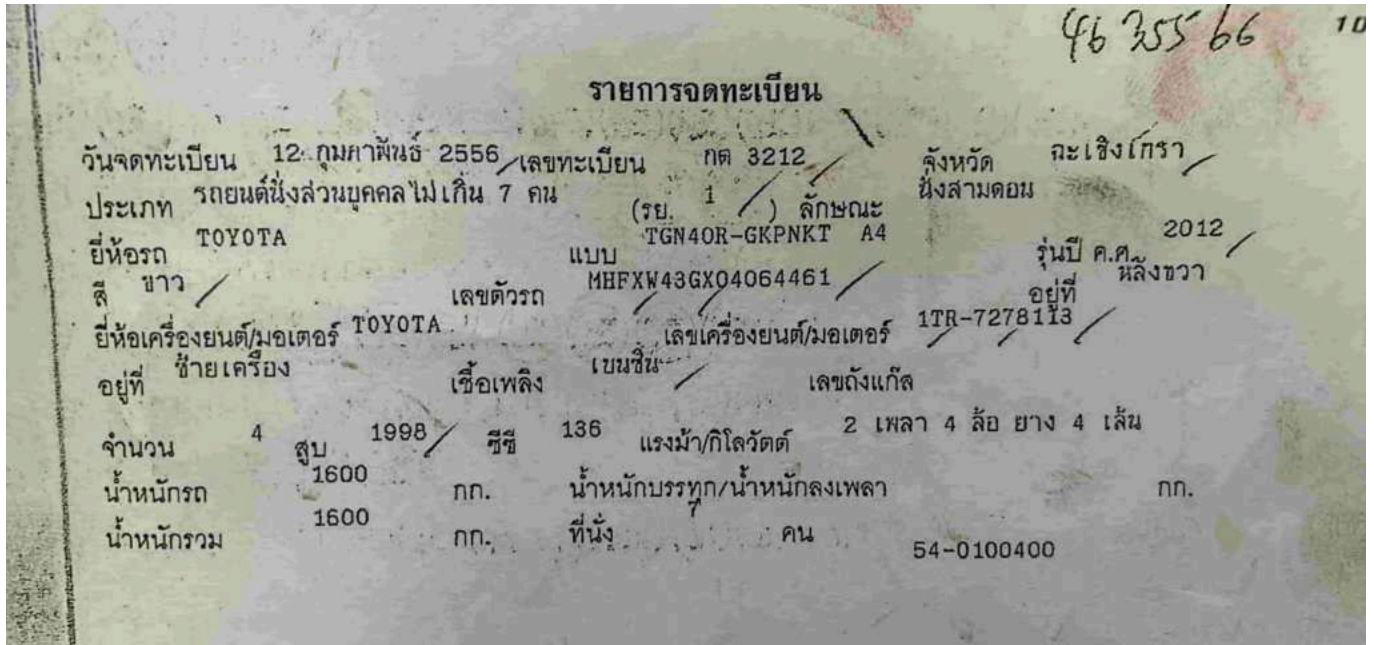 46 355 66
10
รายการจดทะเบียน
วันจดทะเบียน 12 กุมภาพันธ์ 2556 เลขทะเบียน กต 3212 จังหวัด ฉะเชิงเทรา
ประเภท รถยนต์นั่งส่วนบุคคลไม่เกิน 7 คน (รย. 1 ) ลักษณะ นั่งสามตอน
ยี่ห้อรถ TOYOTA แบบ TGN40R-GKPNKT A4 รุ่นปี ค.ศ. 2012
สี ขาว เลขตัวรถ MHFXW43GX04064461 อยู่ที่ หลังขวา
ยี่ห้อเครื่องยนต์/มอเตอร์ TOYOTA เลขเครื่องยนต์/มอเตอร์ 1TR-7278113
อยู่ที่ ซ้ายเครื่อง เชื้อเพลิง เบนซิน เลขถังแก๊ส
จำนวน 4 สูบ 1998 ซีซี 136 แรงม้า/กิโลวัตต์ 2 เพลา 4 ล้อ ยาง 4 เส้น
น้ำหนักรถ 1600 กก. น้ำหนักบรรทุก/น้ำหนักลงเพลา กก.
น้ำหนักรวม 1600 กก. ที่นั่ง 7 คน
54-0100400